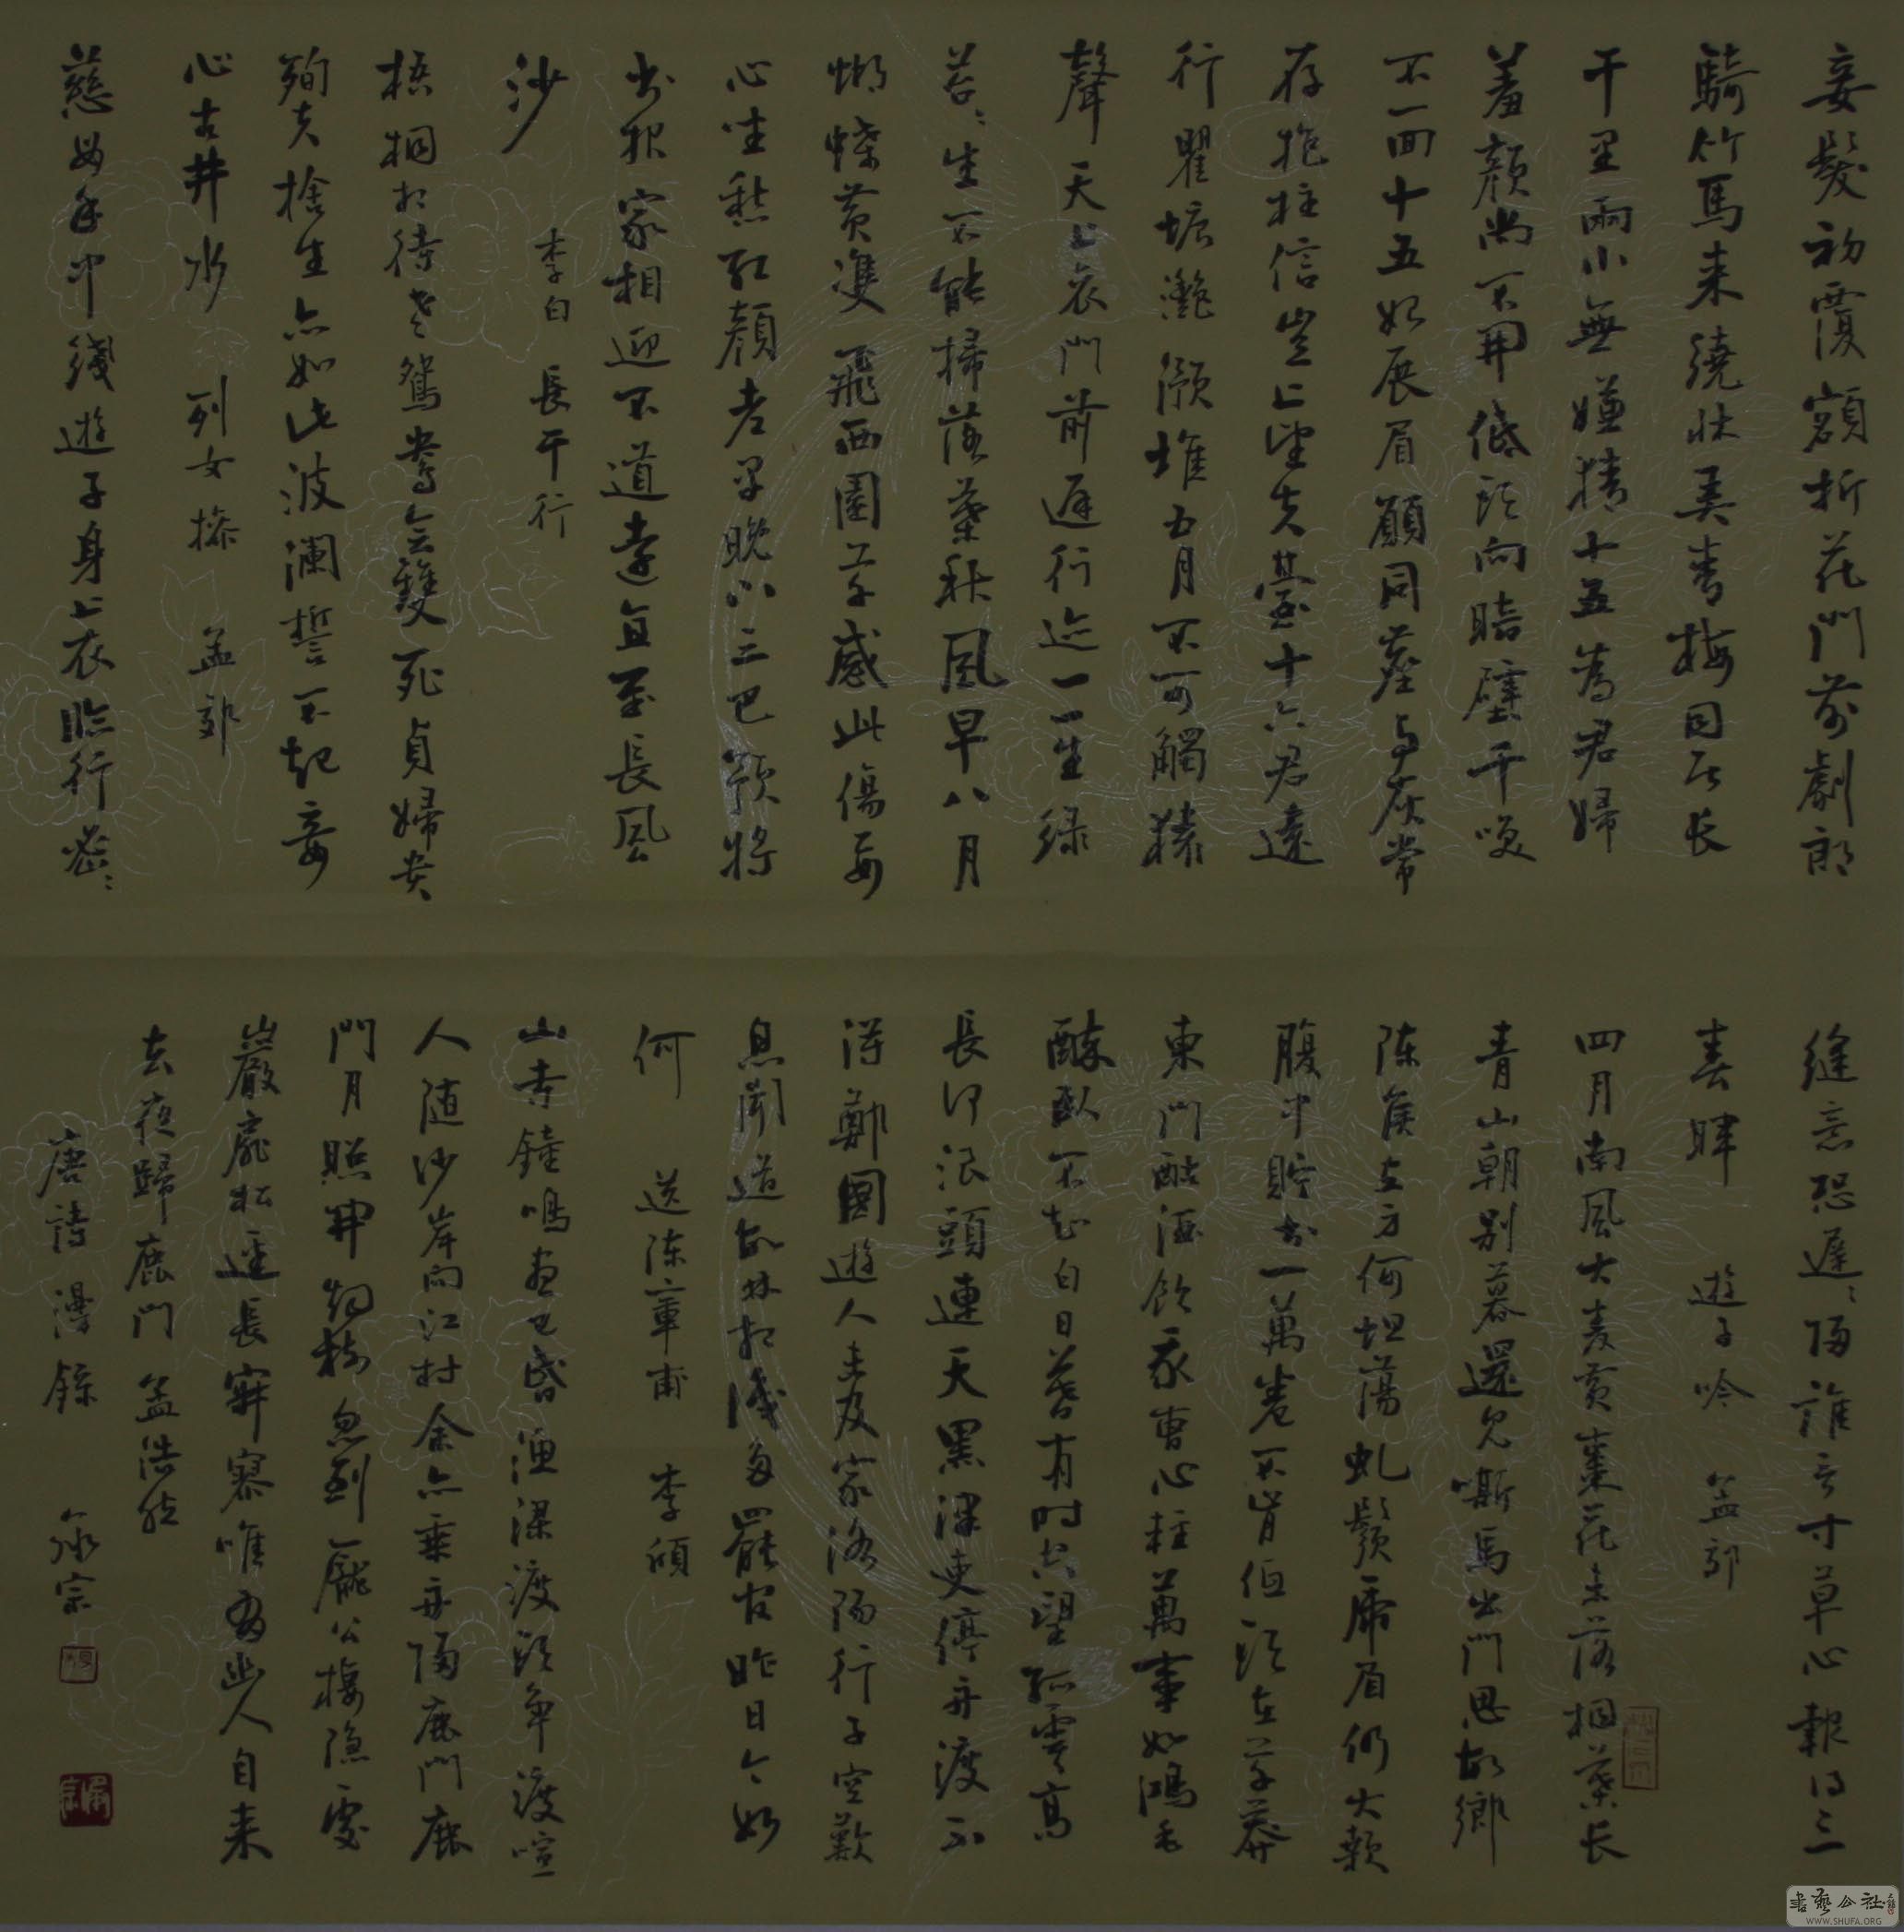 妾髮初覆額折花門前劇郎
騎竹馬来繞牀弄青梅同居長
干里兩小無嫌猜十五為君婦
羞顏尚不開低頭向暗壁千喚
不一回十五始展眉願同塵與灰常
存抱柱信豈上望夫臺十六君遠
行瞿塘灩澦堆五月不可觸猿
聲天上哀門前遲行迹一一生綠
苔苔生不能掃落葉秋風早八月
蝴蝶黃雙飛西園草感此傷妾
心坐愁紅顏老早晚下三巴預將
書报家相迎不道遠直至長風
沙 李白 長干行
梧桐相待老鴛鴦會雙死貞婦貴
殉夫捨生亦如此波瀾誓不起妾
心古井水 列女操 孟郊
慈母手中綫遊子身上衣臨行密密
縫意恐遲遲歸誰言寸草心報得三
春暉 遊子吟 孟郊
四月南風大麦黃棗花未落桐葉长
青山朝别暮還見嘶馬出門思故鄉
陈侯立身何坦蕩虬鬚虎眉仍大顙
腹中貯書一萬卷不肯低頭在草莽
東門酤酒飲我曹心輕萬事如鴻毛
醉臥不知白日暮有时空望孤雲高
長河浪頭連天黑津吏停舟渡不
得鄭國遊人未及家洛陽行子空歎
息聞道故林相識多罷官昨日今如
何 送陈章甫 李頎
山寺鐘鳴晝已昏渔梁渡頭争渡喧
人随沙岸向江村余亦乘舟歸鹿門鹿
門月照開煙樹忽到龐公棲隐處
巖扉松逕長寂寥唯有幽人自来
去夜歸鹿門 孟浩然
唐詩漫錄 永宗
書藝公社
WWW.SHUFA.ORG